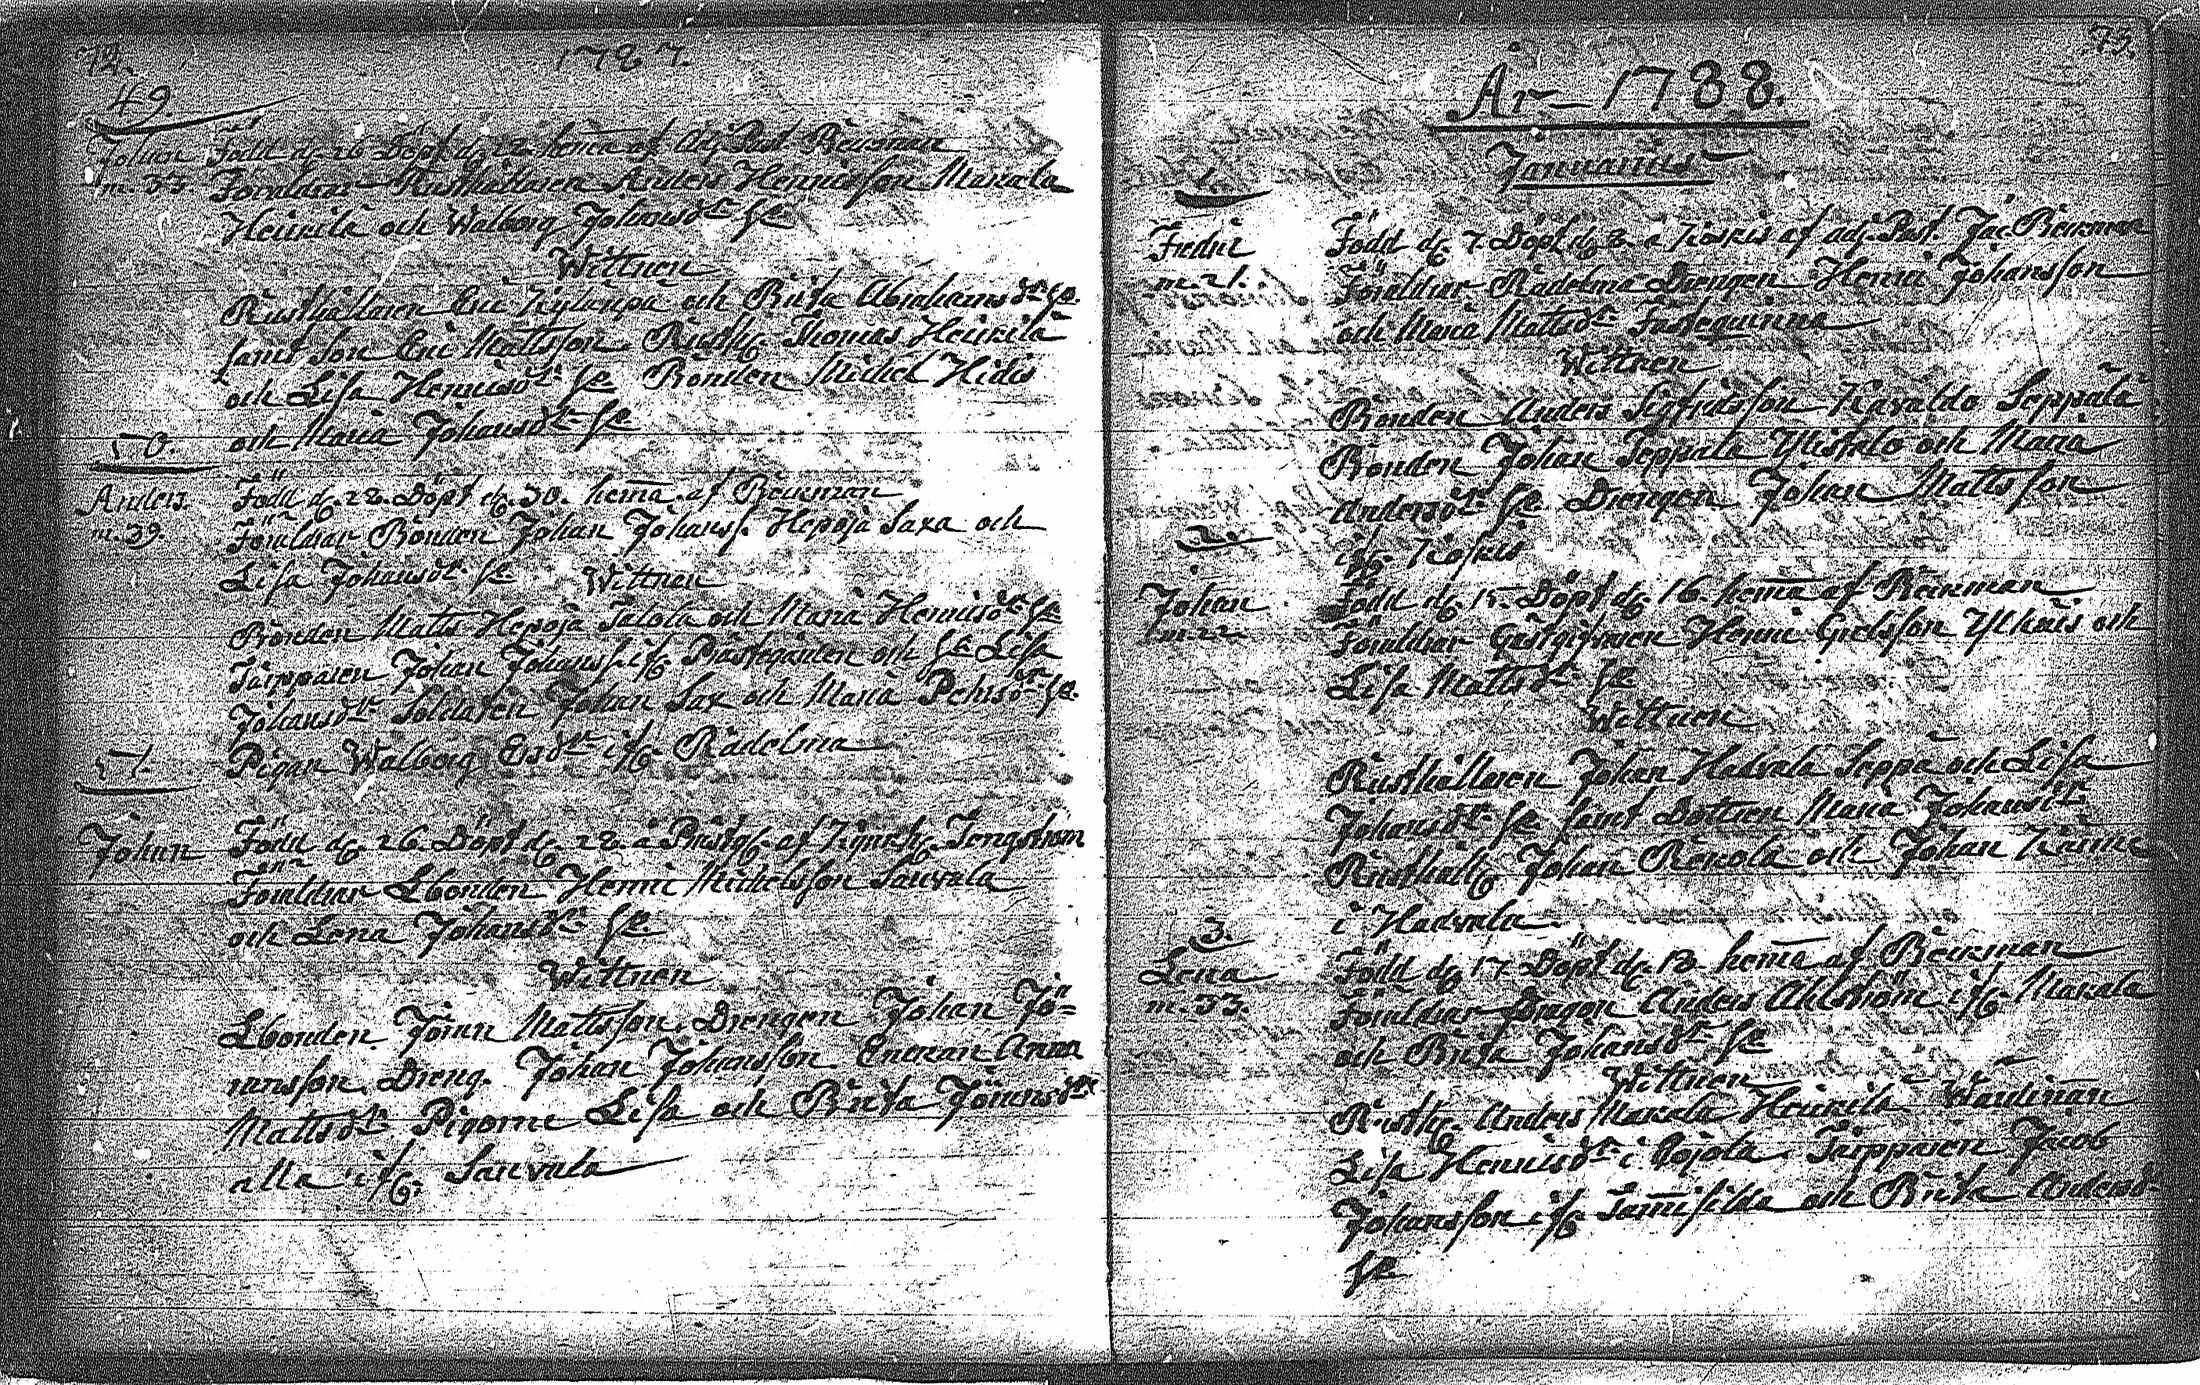 72.
1787.
49.
Johan
m. 33.
Född d. 26 Döpt d. 28. hema af Adj. Past. Beckman
Föräldrar Rusthållaren Anders Henricsson Makala
Heickilä och Walborg Johansdr h:u
Wittnen
Rusthållaren Eric Kylänpä och Brita Abrahamsdr h:u
samt Son Eric Mattsson Rusth. Thomas Heickilä
och Lisa Henricsdr h:u Bonden Michel Hidis
och Maria Johansdr h:u
50.
Anders.
m. 39.
Född d. 22. Döpt d. 30. hema af Beckman
Föräldrar Bonden Johan Johanss. Hepoja Saxa och
Lisa Johansdr h:u Wittnen
Bonden Matts Hepoja Jalola och Maria Henricsdr h:u
Torpparen Johan Johanss. ifr. Prästegården och h:u Lisa
Johansdr Soldaten Johan Sax och Maria Pehrsdr h:u
Pigan Walborg Ersdr ifr. Radelma
51.
Johan
Född d. 26. Döpt d. 28. å Prästg. af Kyrkoh. Tengström
Föräldrar Lbonden Henric Michelsson Sauvala
och Lena Johansdr h:u
Wittnen
Lbonden Jöran Mattsson. Drengen Johan Jö=
ransson Dreng. Johan Johansson Enckan Anna
Mattsdr Pigorne Lisa och Brita Jöransdr
alla ifr. Sauvala
73.
År 1788.
Januarius
1.
Fredric
m. 21.
Född d. 7. Döpt d. 8. i Koskis af adj. Past. Jac. Beckman
Föräldrar Radelma Drengen Henric Johansson
och Maria Mattsdr Fästequinna
Wittnen
Bonden Anders Sigfridsson Kavaldo Seppälä
Bonden Johan Seppälä Ylistalo och Maria
Andersdr h:u Drengen Johan Mattsson
ifr. Koskis
2.
Johan
m. 22.
Född d. 15. Döpt d. 16. hema af Beckman
Föräldrar Gästgifvaren Henric Ylhäis och
Lisa Mattsdr h:u
Wittnen
Rusthållaren Johan Hadvala Seppä och Lisa
Johansdr h:u samt Dottren Maria Johansdr
Rusthåll. Johan Rekola och Johan
i Hadvala
3.
Lena
m. 33.
Född d. 17. Döpt d. 18. hema af Beckman
Föräldrar Dragon Anders Ahlström ifr. Makala
och Brita Johansdr h:u
Wittnen
Rusth. Anders Makala Heickilä Wärdinan
Lisa Henricsdr i Torpparen Jacob
Johansson ifr. och Brita Andersd
h:u